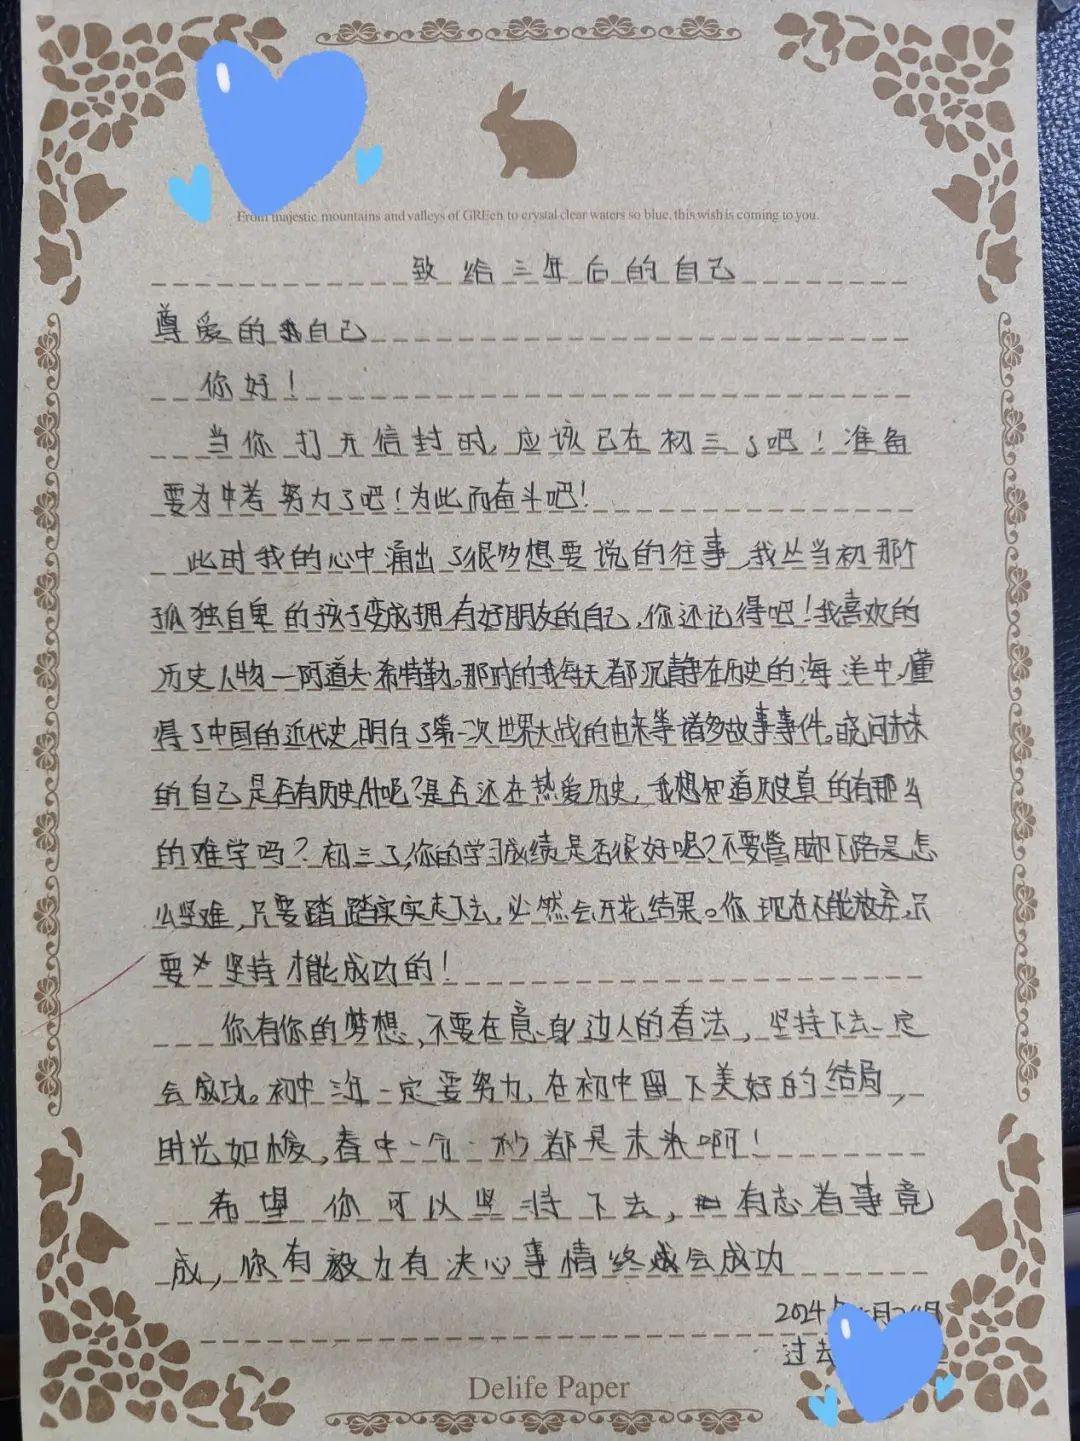 From majestic mountains and valleys of GREen to crystal clear waters so blue, this wish is coming to you.
致给三年后的自己
尊爱的我自己
你好！
当你打开信封时，应该已在初三了吧！准备
要为中考努力了吧！为此而奋斗吧！
此时我的心中涌出了很多想要说的往事，我从当初那个
孤独自卑的孩子变成拥有好朋友的自己，你还记得吧！我喜欢的
历史人物一阿道夫·希特勒。那时的我每天都沉静在历史的海洋中，懂
得了中国的近代史，明白了第一次世界大战的由来等诸多故事事件。问未来
的自己是否有历史书吧？是否还在热爱历史，我想知道历史真的有那么
的难学吗？初三了，你的学习成绩是否很好呢？不要管脚下路是怎
么坚难，只要踏踏实实走下去，必然会开花结果。你现在不能放弃，只
要坚持才能成功的！
你有你的梦想，不要在意身边人的看法，坚持下去一定
会成功。初中三年一定要努力，在初中留下美好的结局，
时光如梭，春中一个一秒都是未来啊！
希望你可以坚持下去，有志者事竟
成，你有毅力有决心事情终成会成功
2024年
过去
Delife Paper